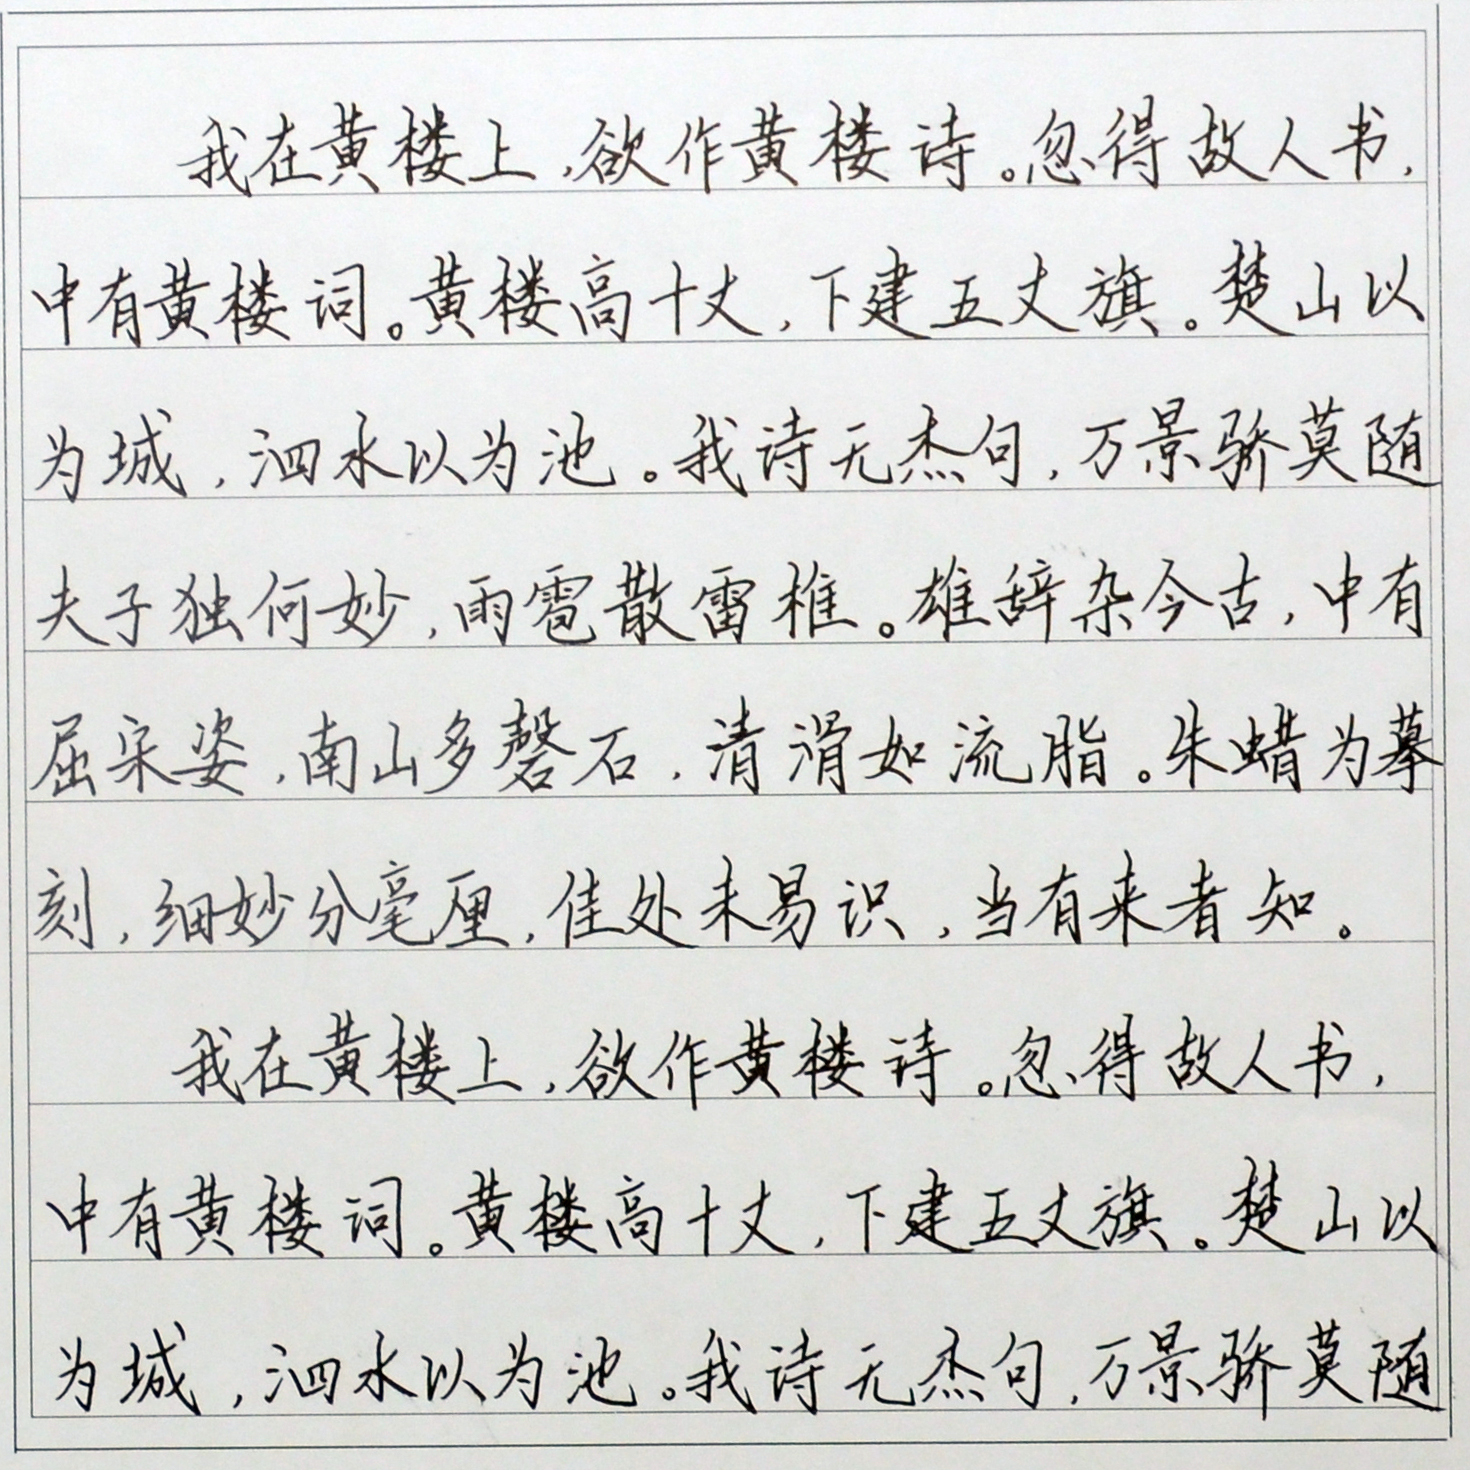 我在黄楼上,欲作黄楼诗。忽得故人书,
中有黄楼词。黄楼高十丈,下建五丈旗。楚山以
为城,泗水以为池。我诗无杰句,万景骄莫随
夫子独何妙,雨雹散雷椎。雄辞杂今古,中有
屈宋姿,南山多磬石,清滑如流脂。朱蜡为摹
刻,细妙分毫厘,佳处未易识,当有来者知。
我在黄楼上,欲作黄楼诗。忽得故人书,
中有黄楼词。黄楼高十丈,下建五丈旗。楚山以
为城,泗水以为池。我诗无杰句,万景骄莫随